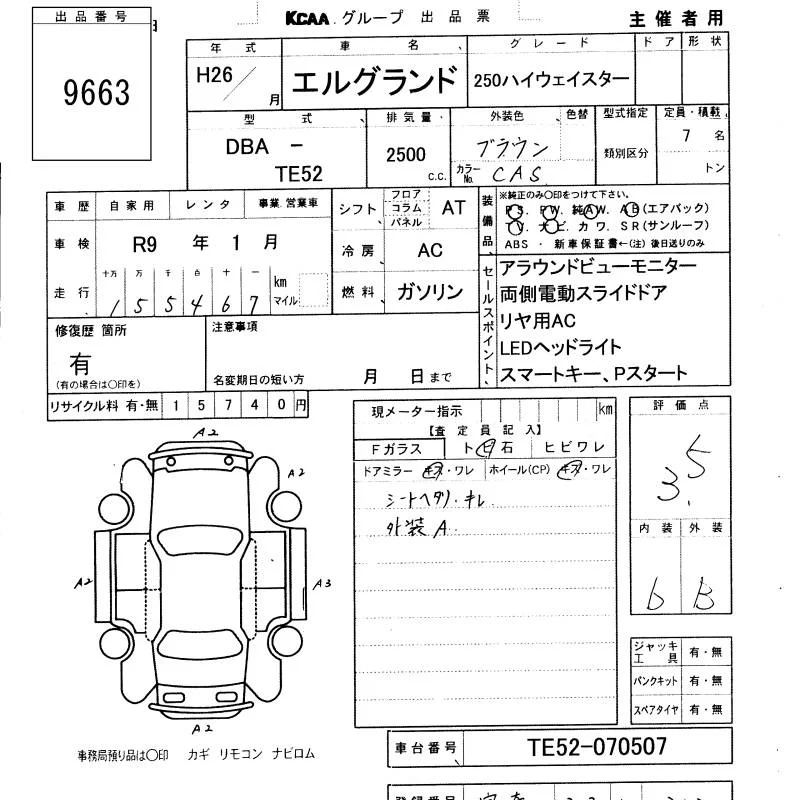 KCAA グループ 出品票
主催者用
出品番号
9663
年式 車名 グレード ドア 形状
H26/ 月 エルグランド 250ハイウェイスター
型式 排気量 外装色 色替 型式指定 定員・積載
DBA - ブラウン 類別区分 7 名
TE52 2500 C.C. カラーNo. CAS トン
車歴 自家用 レンタ 事業.営業車
車検 R9 年 1 月
走行 十万 万 千 百 十 km マイル
1 5 5 4 6 7
シフト フロア コラム パネル AT
冷房 AC
燃料 ガソリン
装備品
※純正のみ○印をつけて下さい。
PS. PW. 純AW. AB(エアバック)
TV. ナビ. カワ. SR(サンルーフ)
ABS ・ 新車保証書←(注) 後日送りのみ
セールスポイント
アラウンドビューモニター
両側電動スライドドア
リヤ用AC
LEDヘッドライト
スマートキー、Pスタート
修復歴 箇所
有
(有の場合は○印を)
注意事項
名変期日の短い方 月 日まで
リサイクル料 有・無 1 5 7 4 0 円
現メーター指示 km
【査定員記入】
Fガラス トビ石 ヒビワレ
ドアミラー キズ・ワレ ホイール(CP) キズ・ワレ
シートヘタリ・キレ
外装A
評価点
3.5
内装 外装
b B
ジャッキ工具 有・無
パンクキット 有・無
スペアタイヤ 有・無
A2
A2
A2
A3
A2
事務局預り品は○印 カギ リモコン ナビロム
車台番号 TE52-070507
登録番号